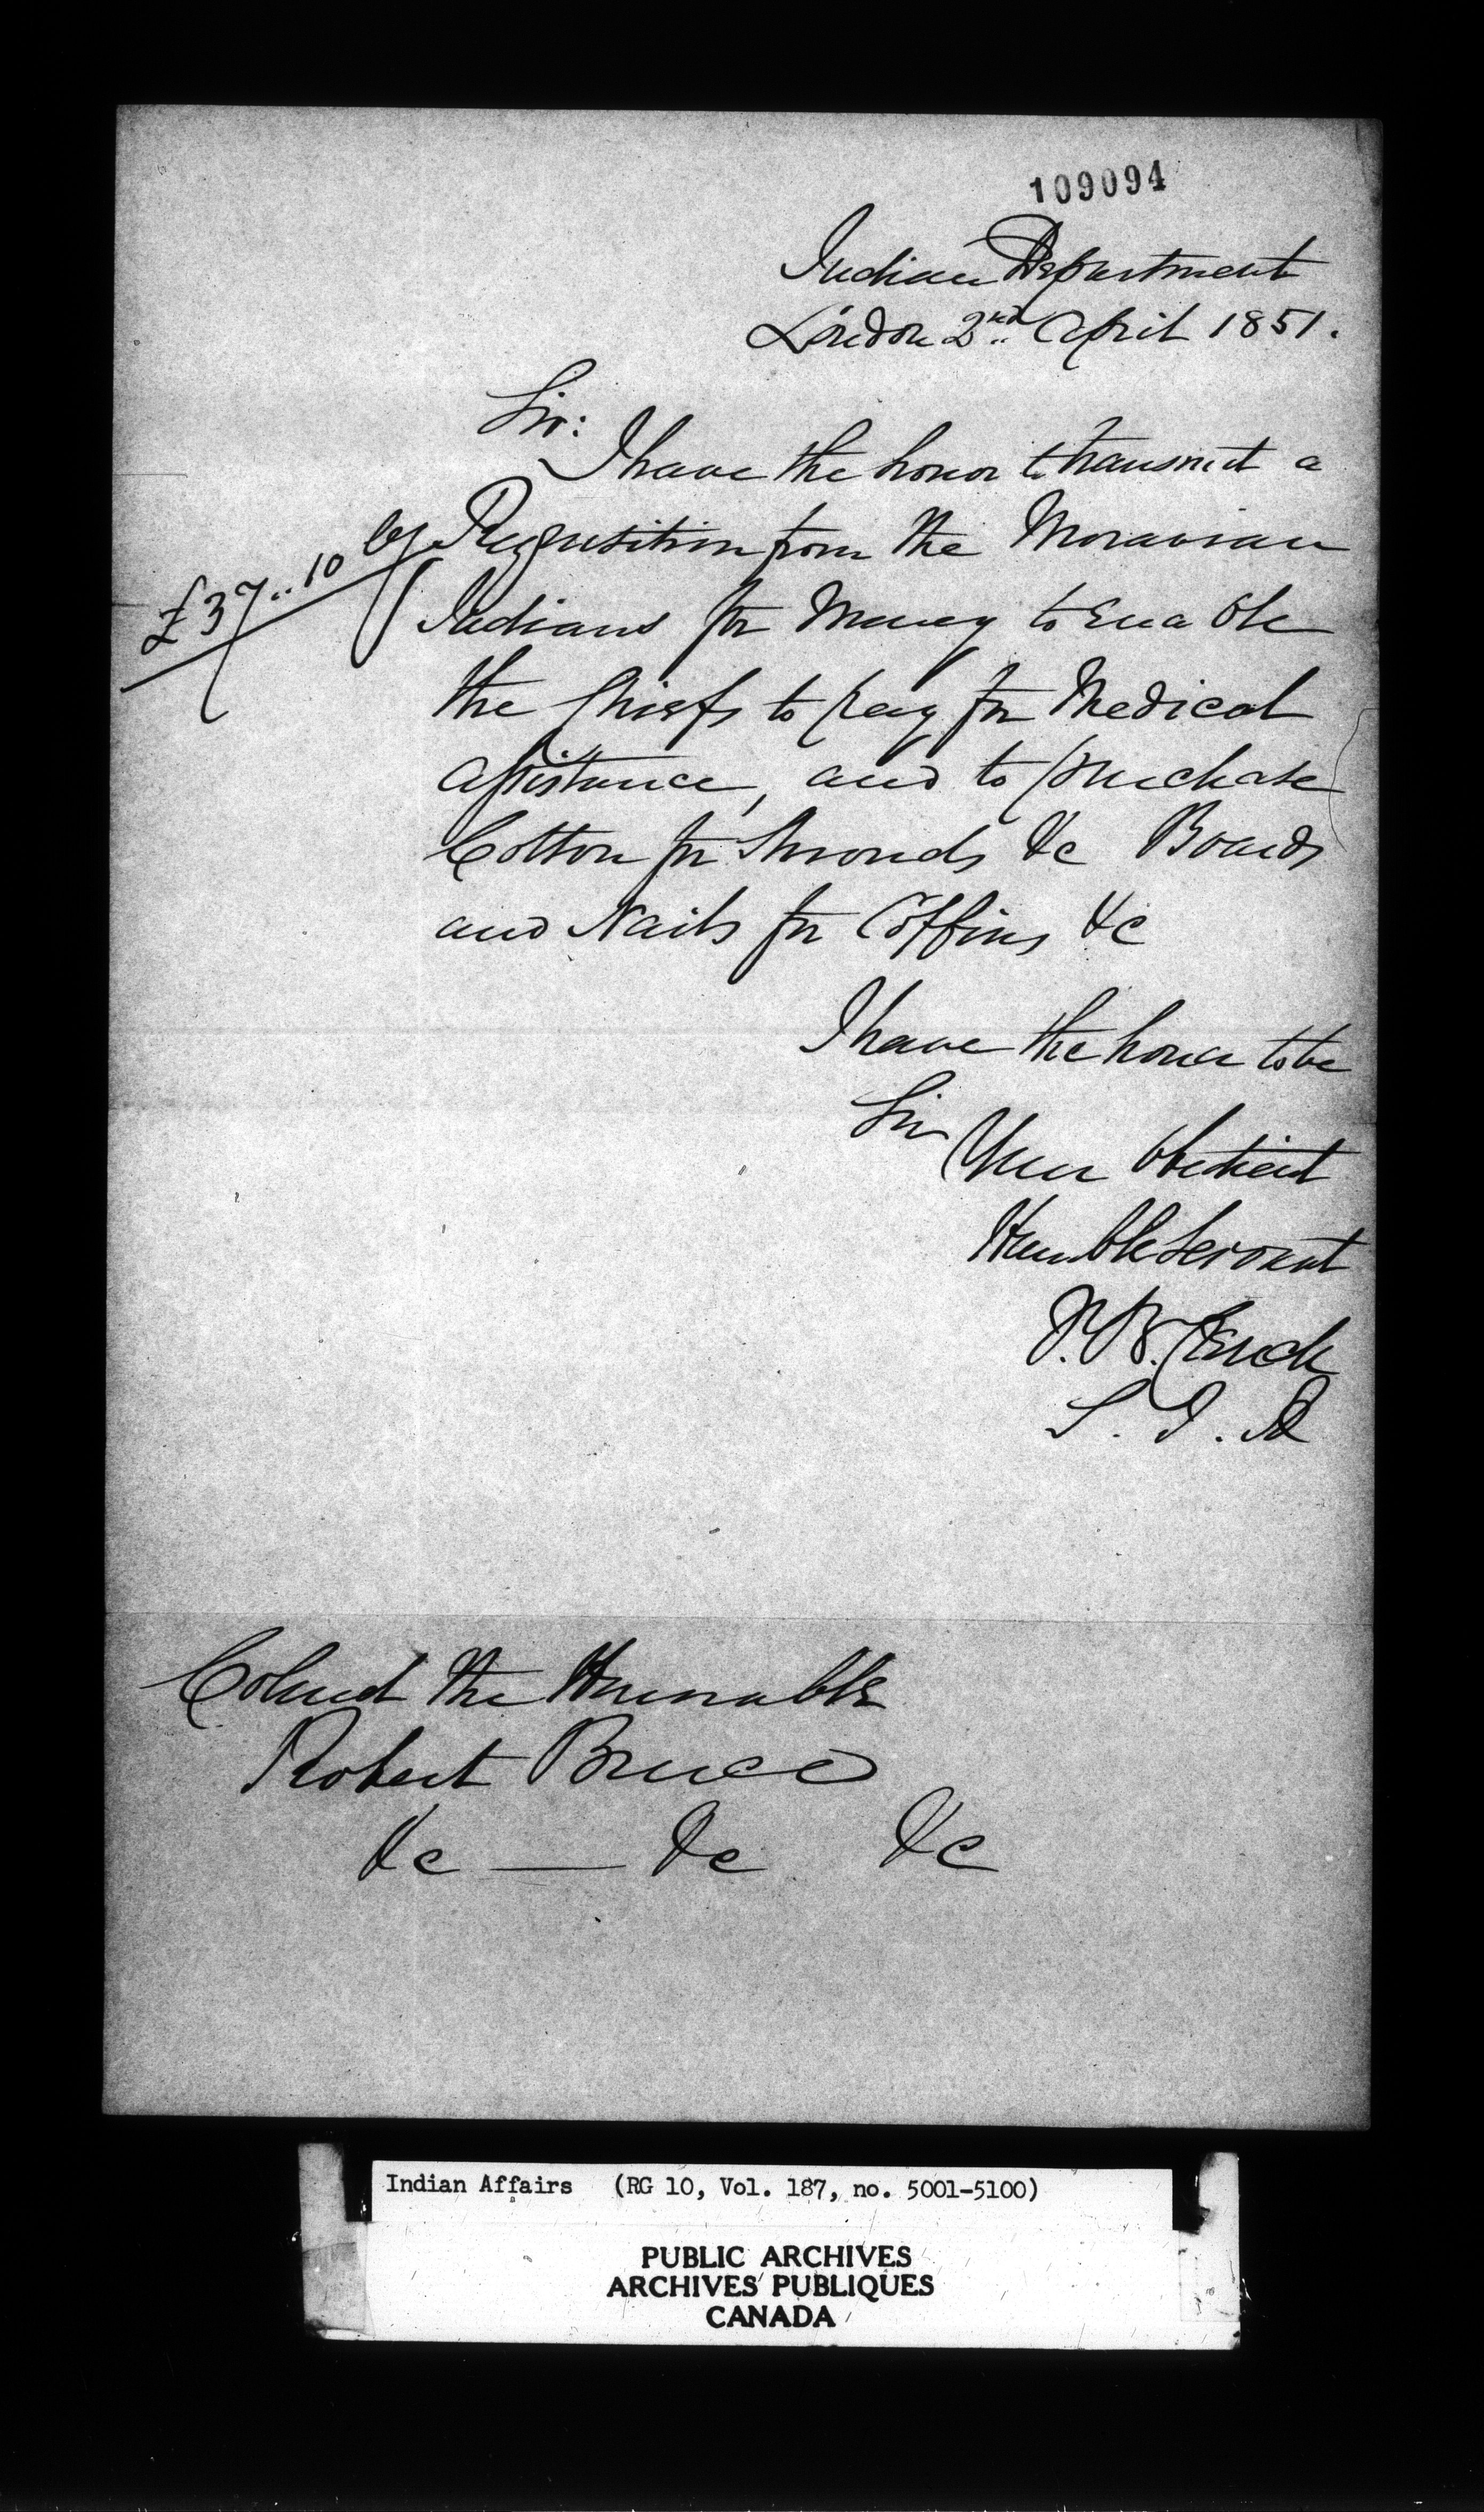 109094
Indian Department
London 2nd April 1851.
Sir:
I have the honor to transmit a
Requisition from the Moravian
£37..10 Cy
Indians for Money to Enable
the Chiefs to pay for Medical
assistance, and to purchase
Cotton for Shrouds &c Boards
and Nails for Coffins &c
I have the honor to be
Sir
Your Obedient
Humble Servant
S. I. A
Colonel the Honorable
Robert Bruce
&c — &c &c
Indian Affairs (RG 10, Vol. 187, no. 5001-5100)
PUBLIC ARCHIVES
ARCHIVES PUBLIQUES
CANADA